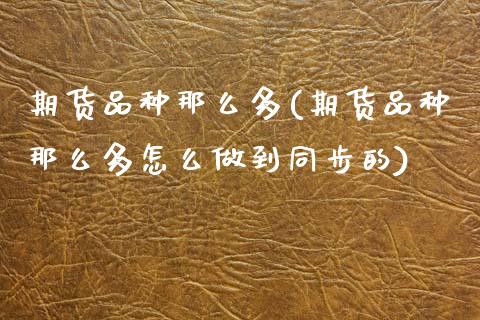 期货品种那么多(期货品种
那么多怎么做到同步的)